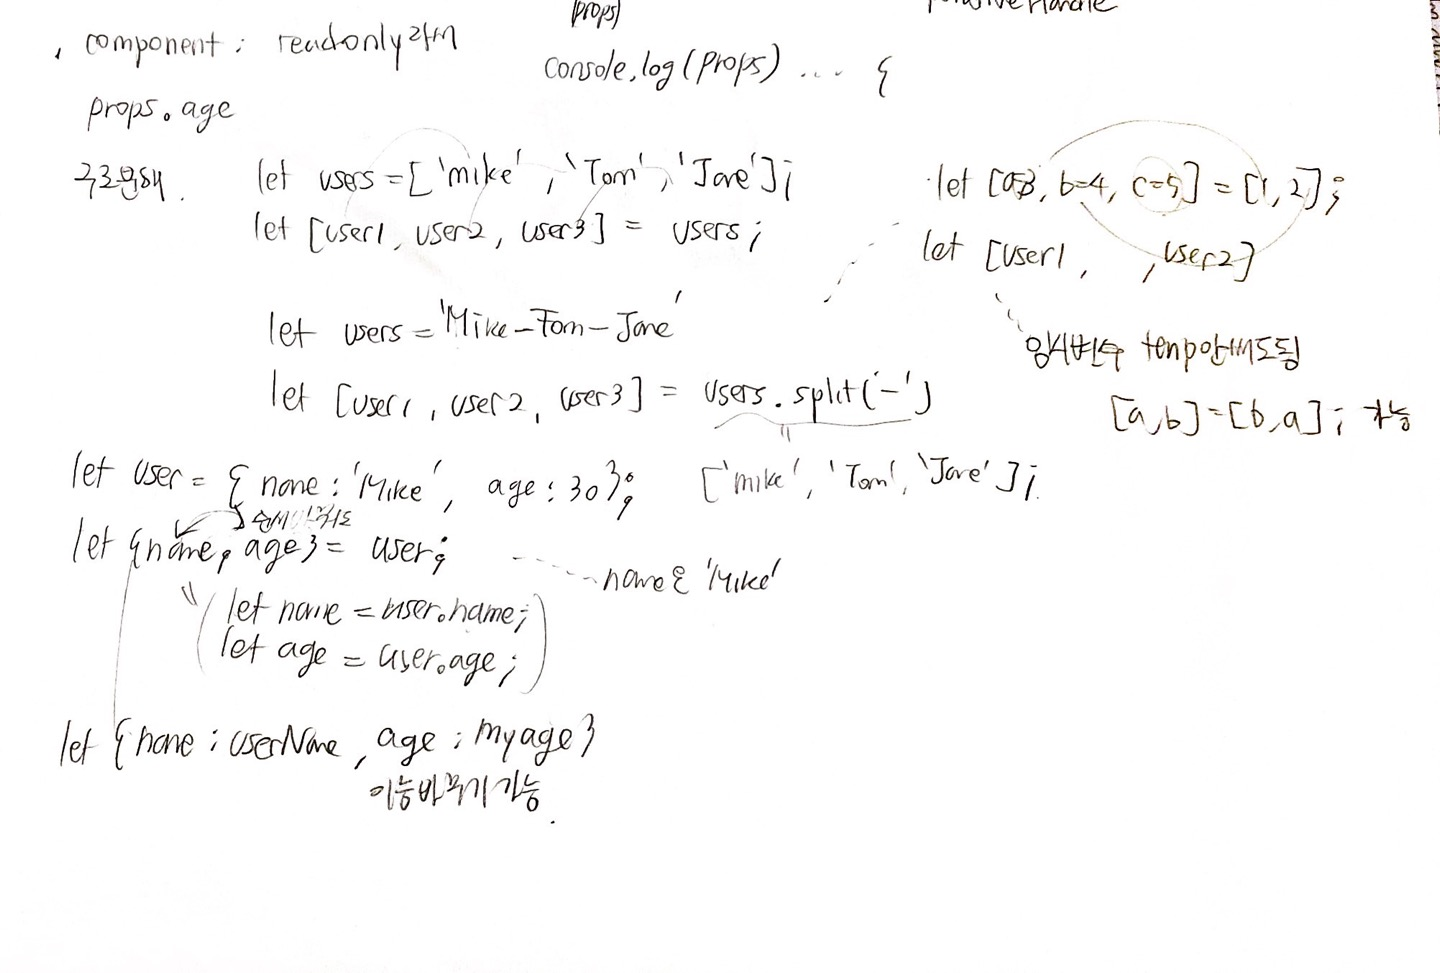 (props)
component : readonly
console.log(props) ... {
props.age
구조분해.
let users = ['mike', 'Tom', 'Jane'];
let [user1, user2, user3] = users;
let [a=3, b=4, c=5] = [1, 2];
let [user1, , user2]
let users = 'Mike-Tom-Jane'
let [user1, user2, user3] = users.split('-')
"
['mike', 'Tom', 'Jane'];
임시변수 temp안써도됨
[a,b]=[b,a]; 가능
let user = { name : 'Mike', age : 30};
let {name, age} = user;
name은 'Mike'
" (let name = user.name;
let age = user.age;)
let {name : userName, age : myage}
이름바꾸기 가능.